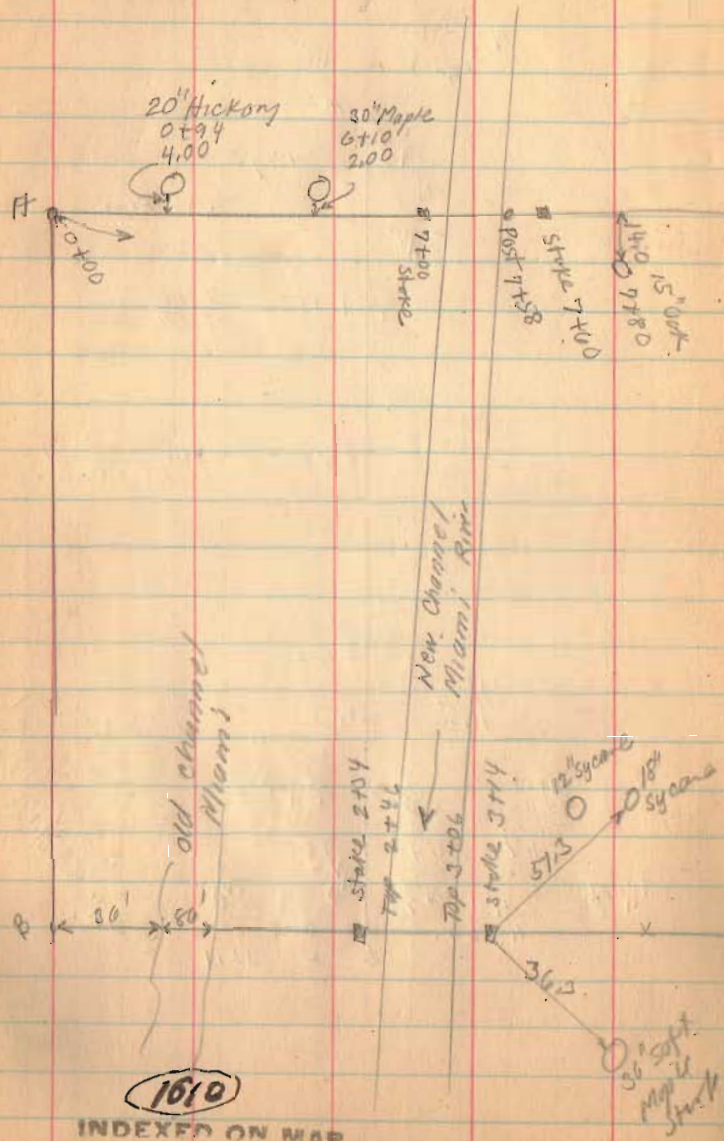 20" Hickory
0+94
4.00
30" Maple
6+10
2.00
A
0+00
7+00
Stake
Post 7+58
Stake 7+60
14.0
15" Oak
7+80
New Channel
Miami River
old channel
Miami
Stake 2+34
Top 2+46
Top 3+06
Stake 3+14
12" Sycamo
18"
Sycamo
51.3
B
36'
80'
36.3
36" Soft
Maple
1610
INDEXED ON MAP